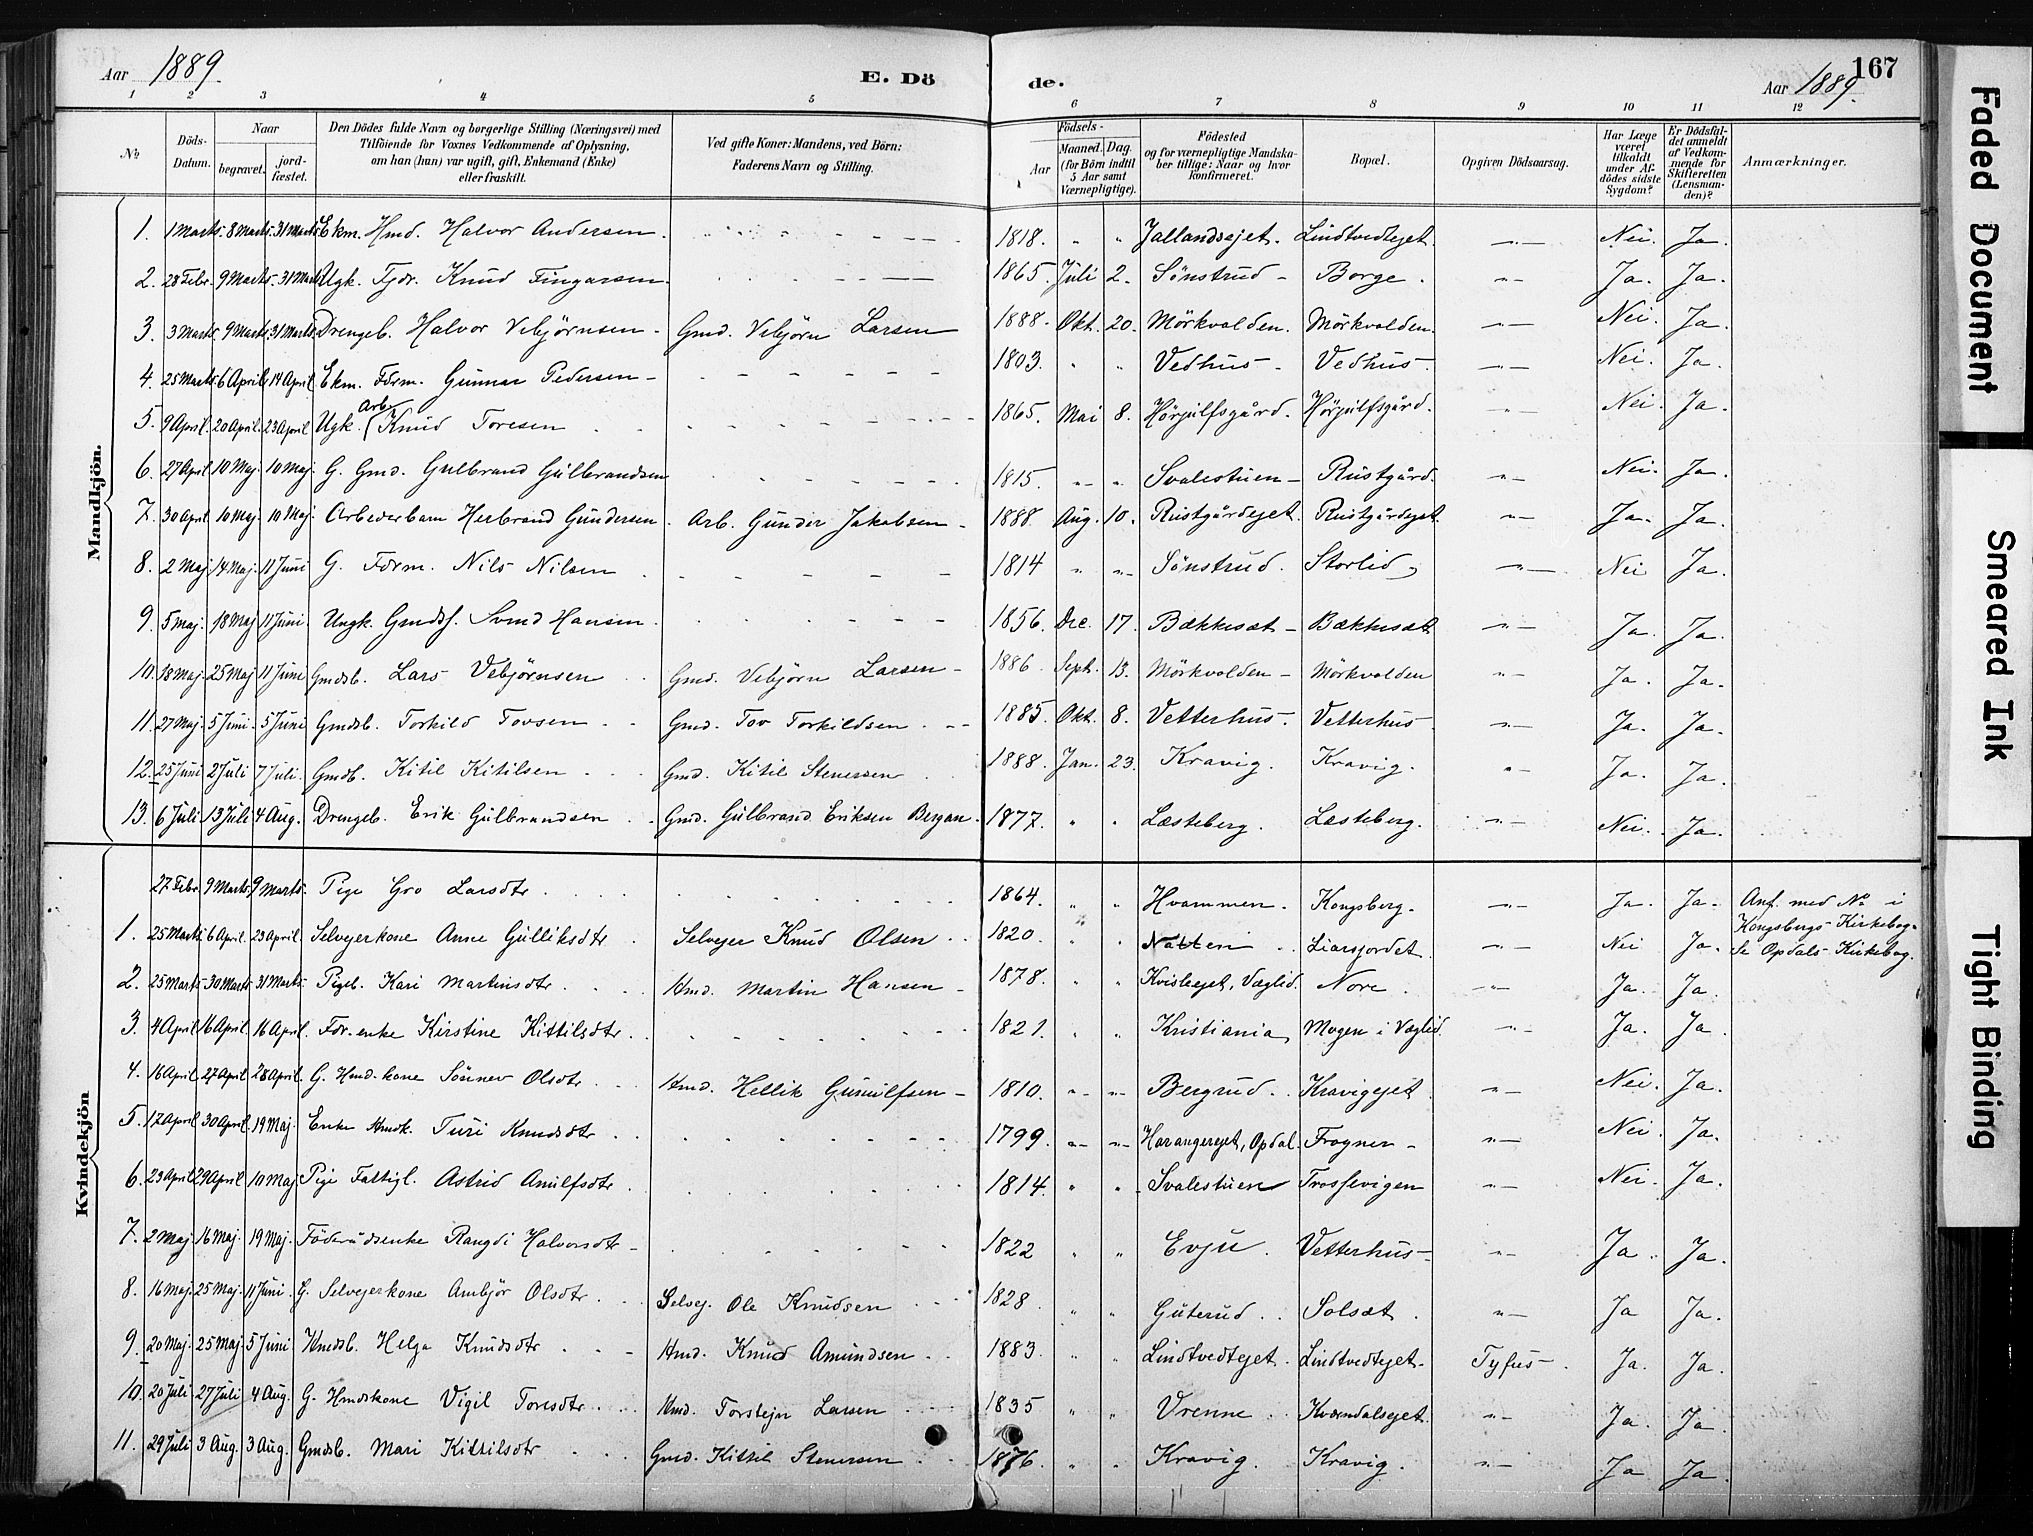 Aar 1889. E. Dö de. Aar 1889. 167
1 2 3 4 5 6 7 8 9 10 11 12
No
Döds-Datum.
Naar
begravet.
jord-fæstet.
Den Dödes fulde Navn og borgerlige Stilling (Næringsvei) med
Tilföiende for Voxnes Vedkommende af Oplysning,
om han (hun) var ugift, gift, Enkemand (Enke)
eller fraskilt.
Ved gifte Koner: Mandens, ved Börn:
Faderens Navn og Stilling.
Födsels-
Aar
Maaned. Dag.
(for Börn indtil
5 Aar samt
Værnepligtige).
Födested
og for værnepligtige Mandska-
ber tillige: Naar og hvor
konfirmeret.
Bopæl.
Opgiven Dödsaarsag.
Har Læge
været
tilkaldt
under Af-
dödes sidste
Sygdom?
Er Dödsfal-
det anmeldt
af Vedkom-
mende for
Skifteretten
(Lensman-
den)?
Anmærkninger.
Mandkjön.
1. 1 Marts. 8 Marts. 31 Marts. Ekm. Hmd. Halvor Andersen. 1818. " " Jallandsejet. Lindtvedtejet. —"— Nei. Ja.
2. 28 Febr. 9 Marts. 31 Marts. Ugk. Tjdr. Knud Fingarsen. 1865. Juli 2. Sönstrud - Borge. —"— Ja. Ja.
3. 3 Marts. 9 Marts. 31 Marts. Drengeb. Halvor Vebjörnsen. Gmd. Vebjörn Larsen 1888. Okt. 20. Mörkvolden. Mörkvolden. —"— Nei. Ja.
4. 25 Marts. 6 April. 14 April. Ekm. Fdrm. Gunnar Pedersen - 1803. " " Vedhus - Vedhus - —"— Nei. Ja.
5. 9 April. 20 April. 23 April. Ugk. Arb. Knud Toresen 1865. Mai 8. Hörjulfsgård. Hörjulfsgård. " Nei. Ja.
6. 27 April 10 Maj. 10 Maj. G. Gmd. Gulbrand Gulbrandsen 1815. —"— " Svalestuen - Rustgård. —"— Nei. Ja.
7. 30 April 10 Maj. 10 Maj. Arbeiderbarn Herbrand Gundersen. Arb. Gunder Jakobsen - 1888. Aug. 10. Rustgårdejet. Rustgårdejet. —"— Ja. Ja.
8. 2 Maj 14 Maj. 11 Juni G. Fdrm. Nils Nilsen 1814 " —"— Sönstrud. Storlid —"— Nei Ja.
9. 5 Maj. 18 Maj 11 Juni Ungk. Gmdss. Svend Hansen. 1856. Dec. 17. Bækkesæt - Bækkesæt —"— Ja. Ja.
10. 18 Maj. 25 Maj 11 Juni Gmdsb. Lars Vebjörnsen Gmd. Vebjörn Larsen - 1886. Sept. 13. Mörkvolden - Mörkvolden —"— Ja. Ja.
11. 27 Maj. 5 Juni. 5 Juni Gmdsb. Torkild Tovsen Gmd. Tov Torkildsen 1885. Okt. 8. Vetterhus. Vetterhus —"— Ja. Ja.
12. 25 Juni 2 Juli 7 Juli. Gmdb. Kitil Kitilsen Gmd. Kitil Stenersen 1888. Jan. 23. Kravig. Kravig. —"— Ja. Ja.
13. 6 Juli 13 Juli 4 Aug. Drengeb. Erik Gulbrandsen Gmd. Gulbrand Eriksen Bergan. 1877. " " Læsteberg. Læsteberg. —"— Nei. Ja.
Kvindekjön
27 Febr. 9 Marts. 9 Marts. Pige Gro Larsdtr 1864. " " Hvammen. Kongsberg. —"— Ja. Ja. Anf. med No i
Kongsbergs Kirkebog.
1. 25 Marts 6 April. 23 April. Selvejerkone Anne Gulliksdtr Selvejer Knud Olsen 1820. " " Natten Liarsjordet. —"— Nei Ja. Se Opdals Kirkebog.
2. 25 Marts 30 Marts. 31 Marts. Pigeb. Kari Martinsdtr Hmd. Martin Hansen - 1878. " " Kvislejet, Væglid. Nore. —"— Ja. Ja.
3. 4 April 16 April. 16 April. Fdr.enke Kirstine Kittilsdtr 1821. " " Kristiania Mogen i Væglid. —"— Ja. Ja.
4. 16 April. 27 April 28 April. G. Hmd.kone Sönnev Olsdtr Hmd. Hellik Gunulfsen - 1810. —"— —"— Bergrud. Kravigejet —"— Nei. Ja.
5. 17 April 30 April. 19 Maj. Enke Hmdk. Turi Knudsdtr 1799. —"— —"— Harangerejet, Opdal. Frogner - —"— Nei. Ja.
6. 23 April 29 April. 10 Maj Pige Fattigl. Astrid Anulfsdtr 1814. " " Svalestuen Trossevigen —"— Nei. Ja.
7. 2 Maj 16 Maj. 19 Maj. Föderådsenke Rangdi Halvorsdtr - 1822 " " Evju. Vetterhus - —"— Ja. Ja.
8. 16 Maj. 25 Maj. 11 Juni. G. Selvejerkone Ambjör Olsdtr Selvej. Ole Knudsen 1828. " " Guterud Solsæt —"— Ja Ja.
9. 20 Maj. 25 Maj. 5 Juni Hmdsb. Helga Knudsdtr Hmd. Knud Amundsen 1883. " " Lindtvedtejet. Lindtvedtejet. Tyfus - Ja. Ja.
10. 20 Juli 27 Juli 4 Aug. G. Hmdskone Vigil Toresdtr Hmd. Torstejn Larsen 1835 " " Vrenne Kvændalsejet. —"— Ja. Ja.
11. 29 Juli 3 Aug. 3 Aug. Gmdsb. Mari Kittilsdtr Gmd. Kittil Stenersen 1876. " " Kravig. Kravig. —"— Ja Ja.
Faded Document
Smeared Ink
Tight Binding